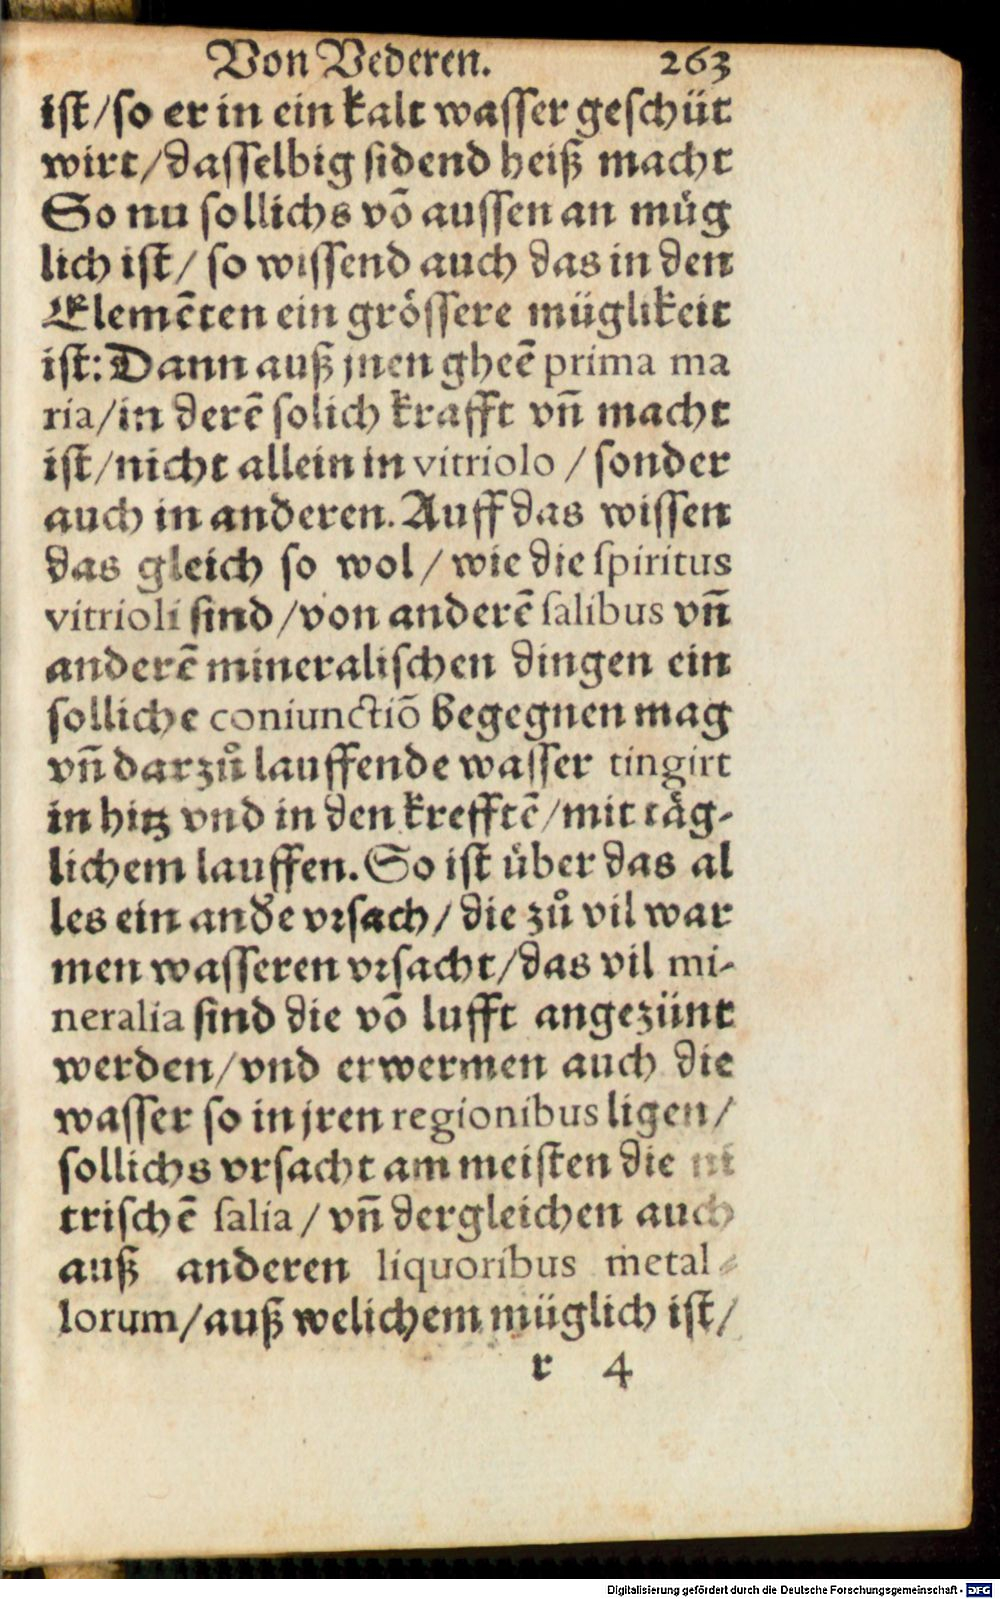 Von Vederen. 263
ist/so er in ein kalt wasser geschüt
wirt/dasselbig sidend heiß macht
So nu sollichs võ aussen an müg
lich ist/ so wissend auch das in den
Elemẽten ein grössere müglikeit
ist: Dann auß jnen gheẽ prima ma
ria/in derẽ solich krafft vñ macht
ist/nicht allein in vitriolo / sonder
auch in anderen. Auff das wissen
das gleich so wol / wie die spiritus
vitrioli sind/von anderẽ salibus vñ
anderẽ mineralischen dingen ein
solliche coniunctiõ begegnen mag
vñ darzů lauffende wasser tingirt
in hitz vnd in den krefftẽ/mit täg-
lichem lauffen. So ist über das al
les ein ande vrsach/ die zů vil war
men wasseren vrsacht/das vil mi-
neralia sind die võ lufft angezünt
werden/vnd erwermen auch die
wasser so in jren regionibus ligen/
sollichs vrsacht am meisten die ni
trischẽ salia / vñ dergleichen auch
auß anderen liquoribus metal-
lorum/auß welichem müglich ist/
r 4
Digitalisierung gefördert durch die Deutsche Forschungsgemeinschaft - DFG